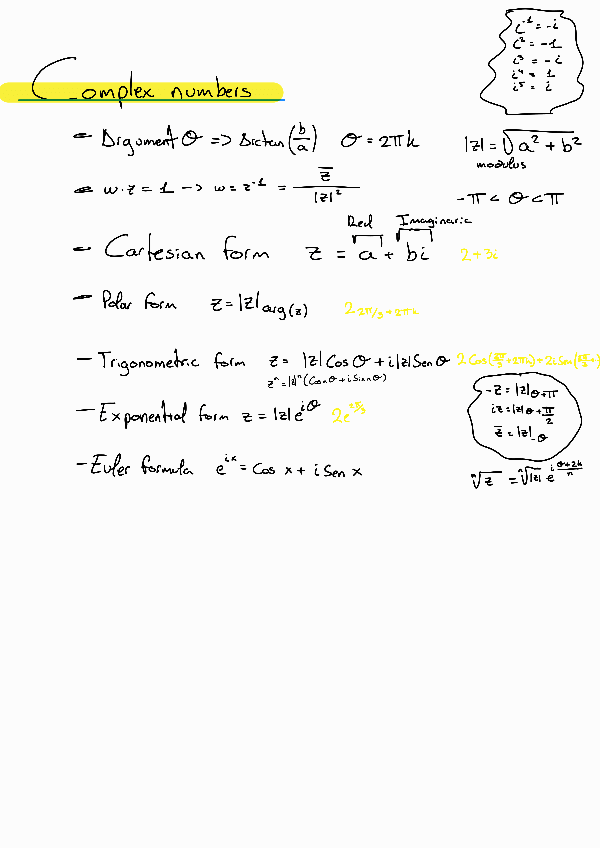 i⁻¹ = -i
i² = -1
i³ = -i
i⁴ = 1
i⁵ = i
Complex numbers
- Argument θ => Arctan(b/a) θ = 2πk
|z| = √(a² + b²)
modulus
- w·z = 1 -> w = z⁻¹ = z̅/|z|²
-π < θ < π
Real Imaginaria
- Cartesian form z = a + bi 2+3i
- Polar form z = |z|arg(z) 2 2π/3 + 2πk
- Trigonometric form z = |z| Cos θ + i|z| Sen θ
zⁿ = |z|ⁿ (Cos nθ + i Sin nθ)
-z = |z| θ+π
iz = |z| θ+π/2
z̅ = |z| -θ
- Exponential form z = |z| e^iθ
- Euler formula e^ix = Cos x + i Sen x
ⁿ√z = ⁿ√|z| e^i (θ+2k)/n